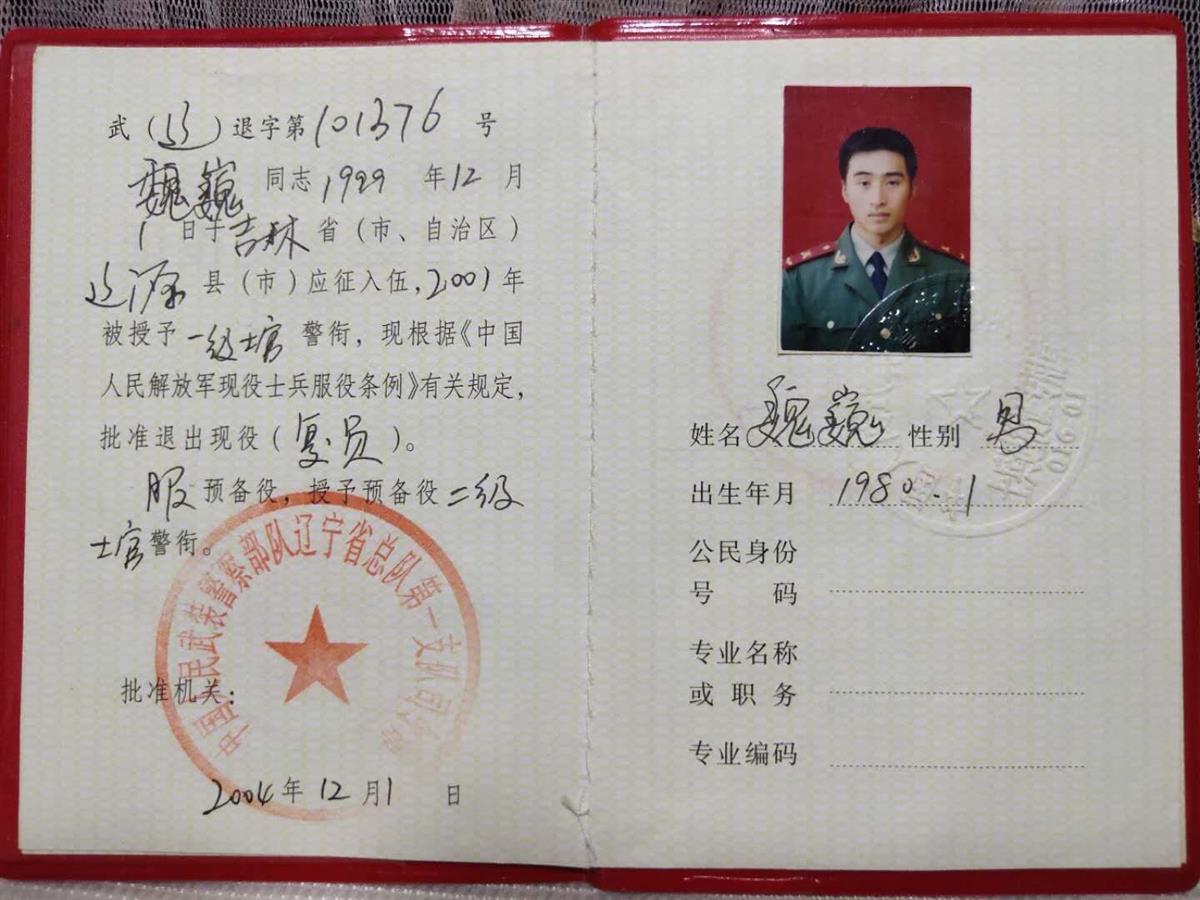 武（辽）退字第101376号
魏巍 同志 1999 年 12 月
1 日于吉林省（市、自治区）
辽源县（市）应征入伍，2001年
被授予一级士官警衔，现根据《中国
人民解放军现役士兵服役条例》有关规定，
批准退出现役（复员）。
服预备役，授予预备役二级
士官警衔。
中国人民武装警察部队辽宁省总队第一支队司令部
批准机关：
2004年12月1日
姓名 魏巍 性别 男
出生年月 1980.1
公民身份
号码
专业名称
或职务
专业编码